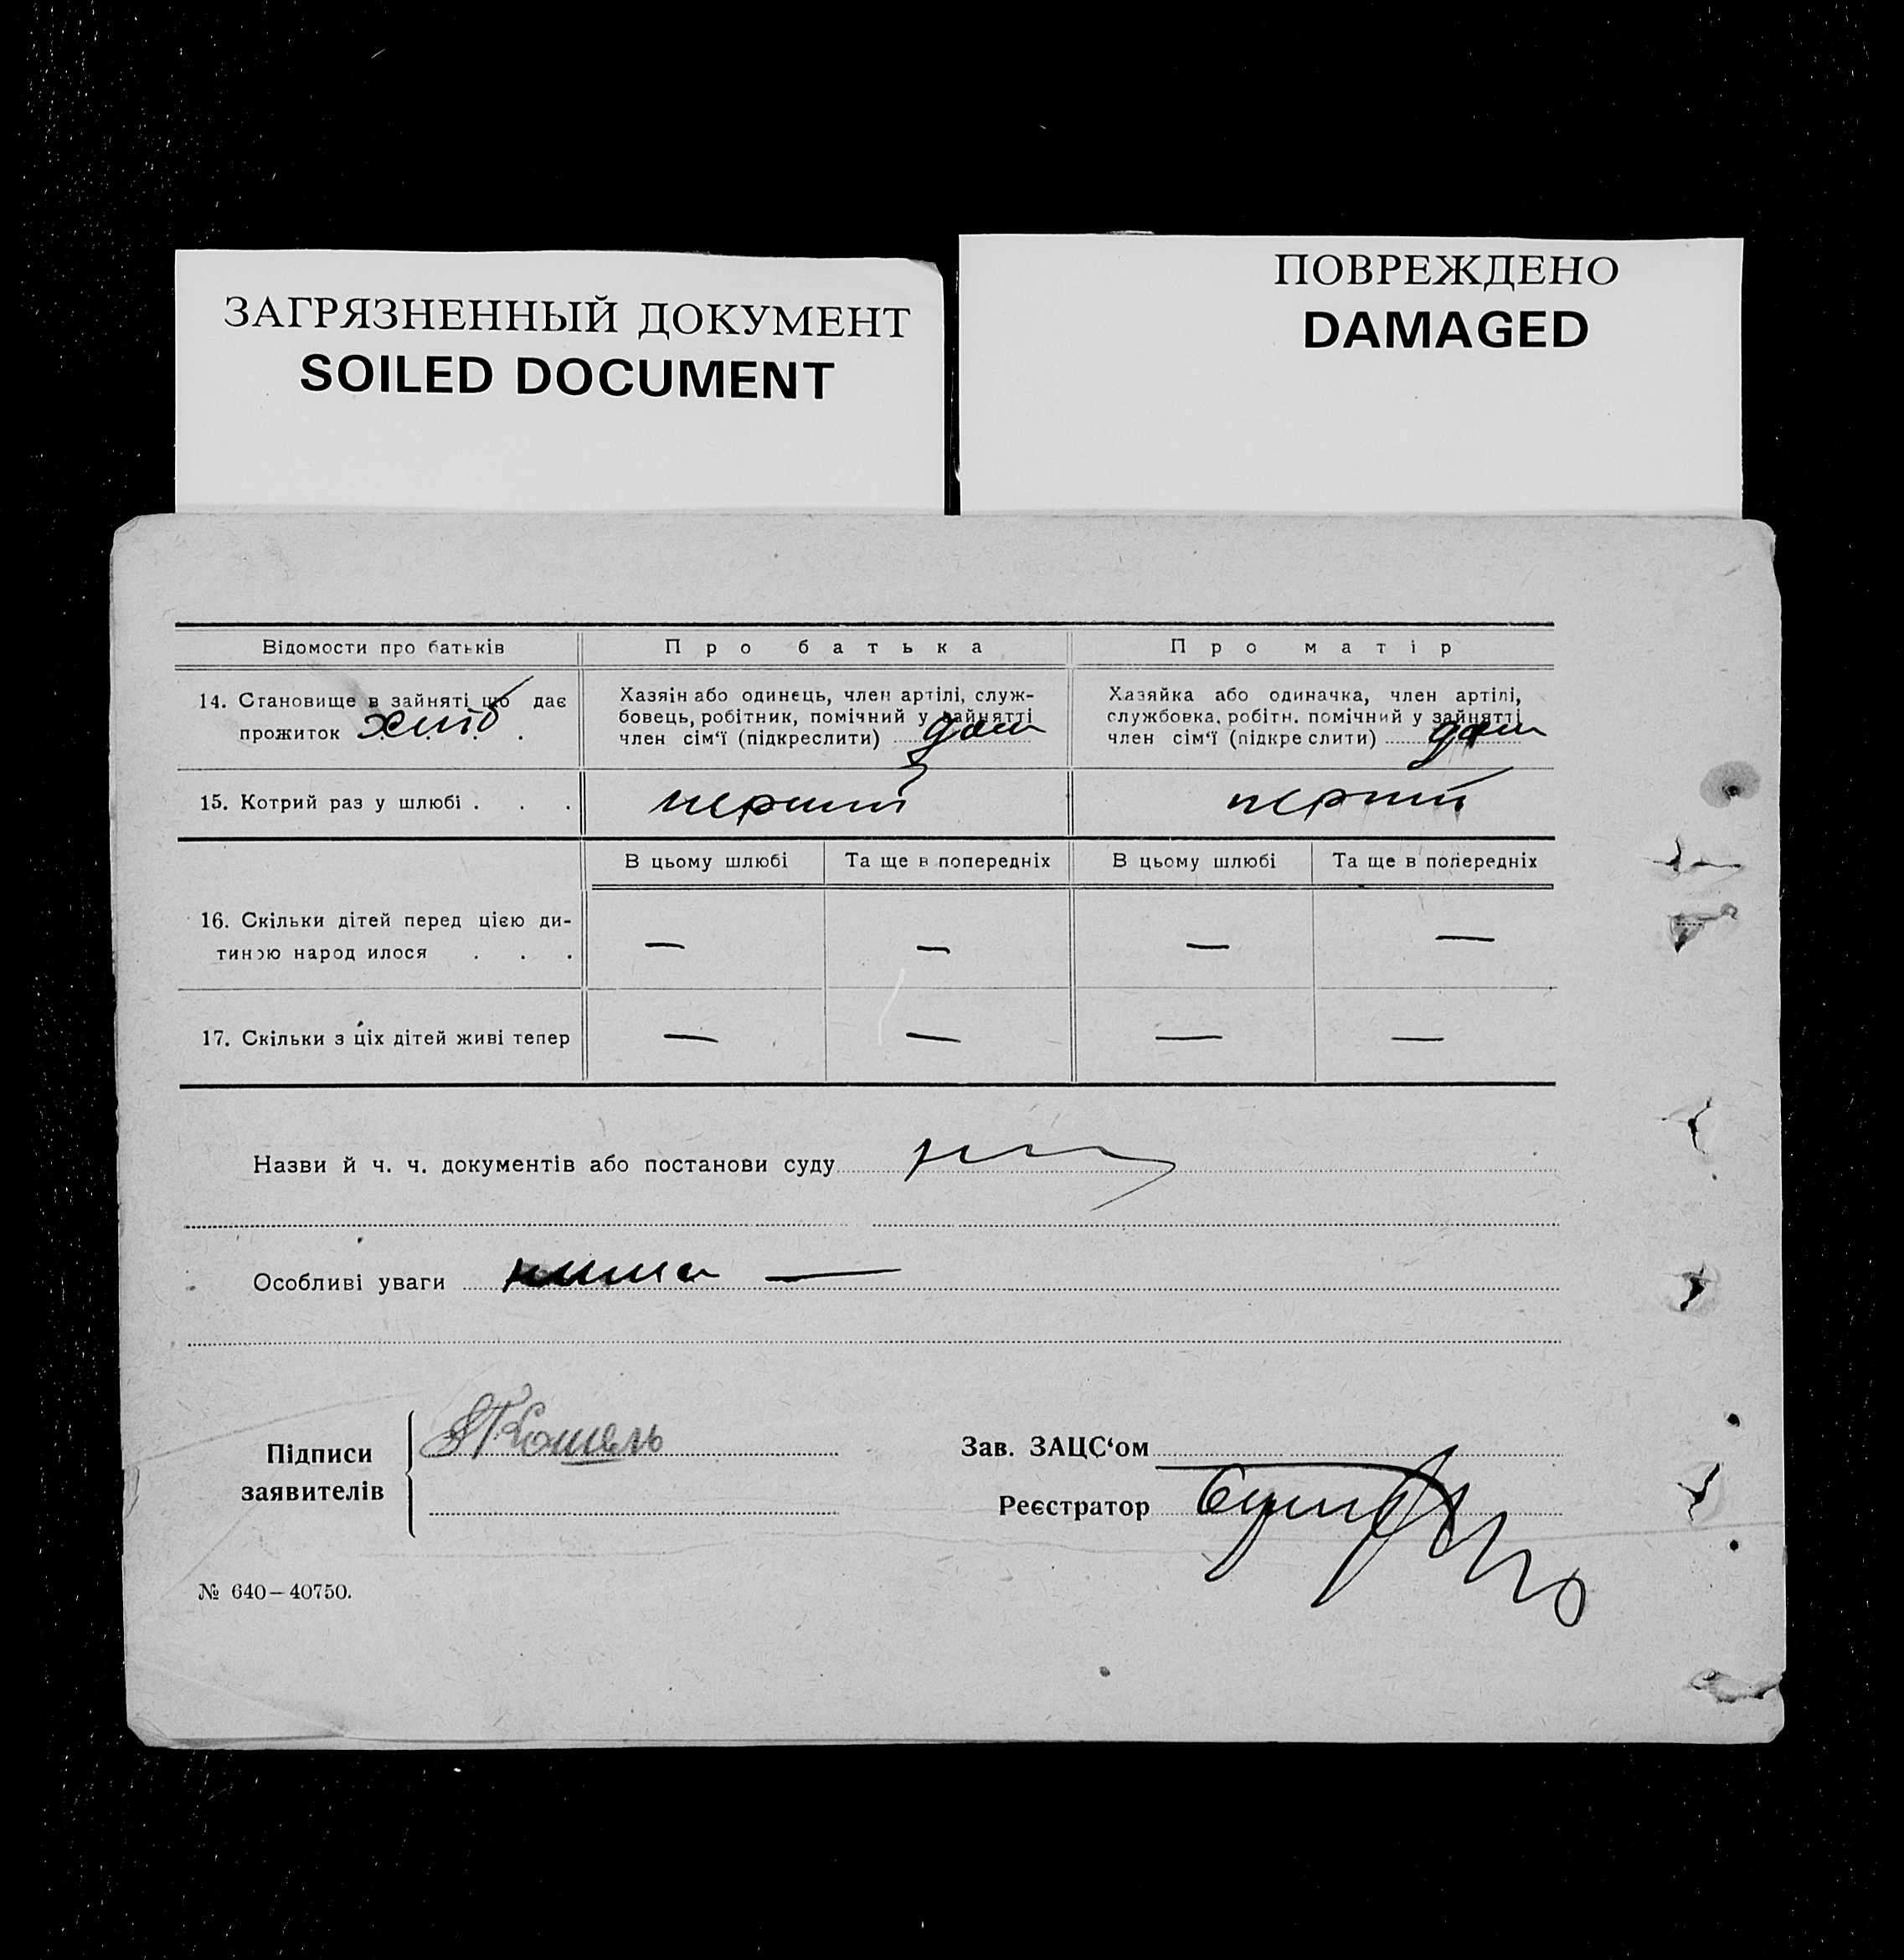 ЗАГРЯЗНЕННЫЙ ДОКУМЕНТ
SOILED DOCUMENT
ПОВРЕЖДЕНО
DAMAGED
Відомости про батьків
Про батька
Про матір
14. Становище в зайняті що дає
прожиток . . . .
Хазяін або одинець, член артілі, служ-
бовець, робітник, помічний у зайнятті
член сім‘ї (підкреслити)
Хазяйка або одиначка, член артілі,
службовка, робітн. помічний у зайнятті
член сім‘ї (підкреслити)
15. Котрий раз у шлюбі . . .
перший
перший
В цьому шлюбі
Та ще в попередніх
В цьому шлюбі
Та ще в попередніх
16. Скільки дітей перед цією ди-
тиною народилося . . .
— — — —
17. Скільки з ціх дітей живі тепер
— — — —
Назви й ч. ч. документів або постанови суду
Особливі уваги нима —
Підписи
заявителів
Кошель
Зав. ЗАЦС‘ом
Реєстратор
№ 640—40750.